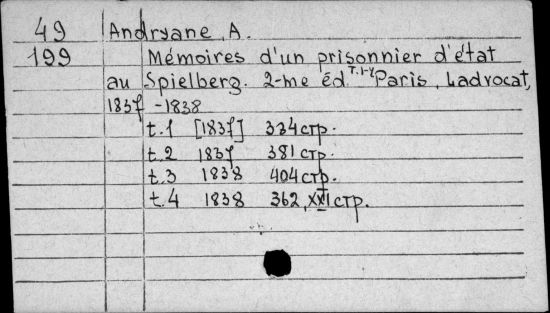 49 Andryane, A.
199 Mémoires d'un prisonnier d'état
au Spielberg. 2-me éd. T.1-4 Paris, Ladvocat,
1837-1838
t.1 [1837] 334 стр.
t.2 1837 381 стр.
t.3 1838 404 стр.
t.4 1838 362, XXI стр.